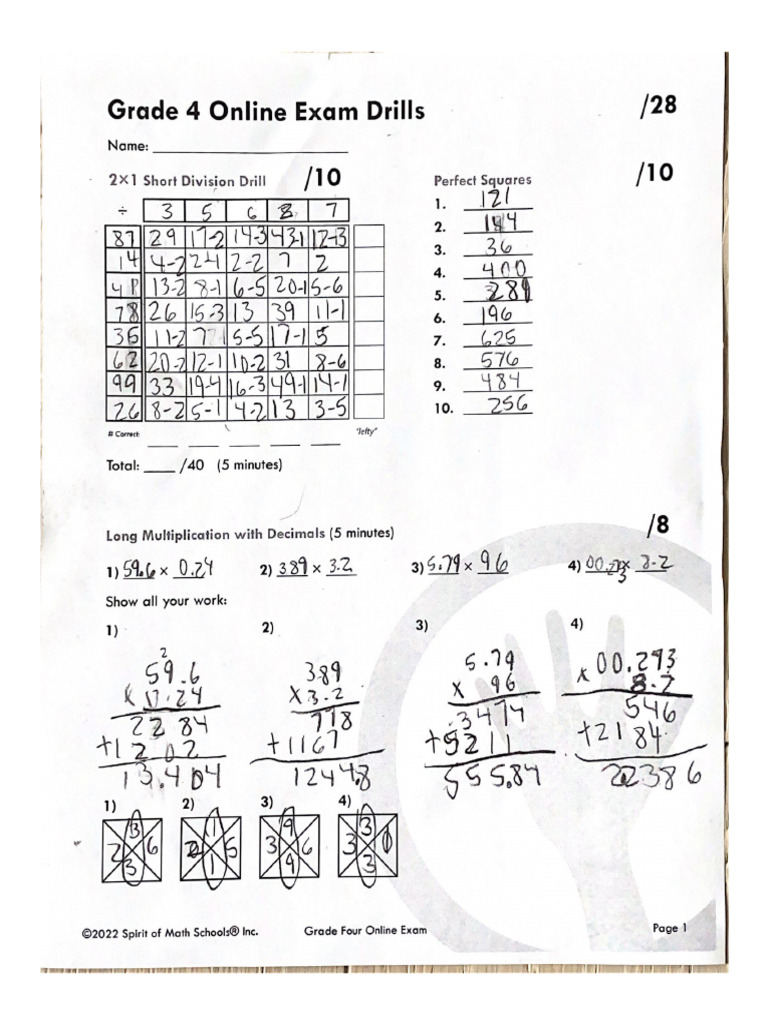 Grade 4 Online Exam Drills /28
Name:
2×1 Short Division Drill /10 Perfect Squares /10
÷ 3 5 6 8 7
87 29 17-2 14-3 43-1 12-3
14 4-2 24 2-2 7 2
41 13-2 8-1 6-5 20-1 5-6
78 26 15-3 13 39 11-1
36 11-2 5-5 17-1 5
62 20-2 12-1 10-2 31 8-6
99 33 19-4 16-3 49-1 14-1
26 8-2 5-1 4-2 13 3-5
# Correct: "lefty"
Total: /40 (5 minutes)
1. 121
2. 144
3. 36
4. 400
5. 289
6. 196
7. 625
8. 576
9. 484
10. 256
Long Multiplication with Decimals (5 minutes) /8
1) 59.6 × 0.24 2) 389 × 3.2 3) 5.79 × 96 4) ×
Show all your work:
1) 2) 3) 4)
2
59.6 389 5.79 00.273
x 0.24 x 3.2 x 96 8.2
2284 778 3474 546
+1202 +1167 +5211 +2184
13.404 1244.8 555.84 22386
1) 2) 3) 4)
3 1 9 3
2 6 2 5 3 6 3 0
3 1 9 3
©2022 Spirit of Math Schools® Inc. Grade Four Online Exam Page 1